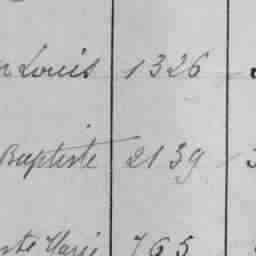 Louis 1326
Baptiste 2139
Marie 765